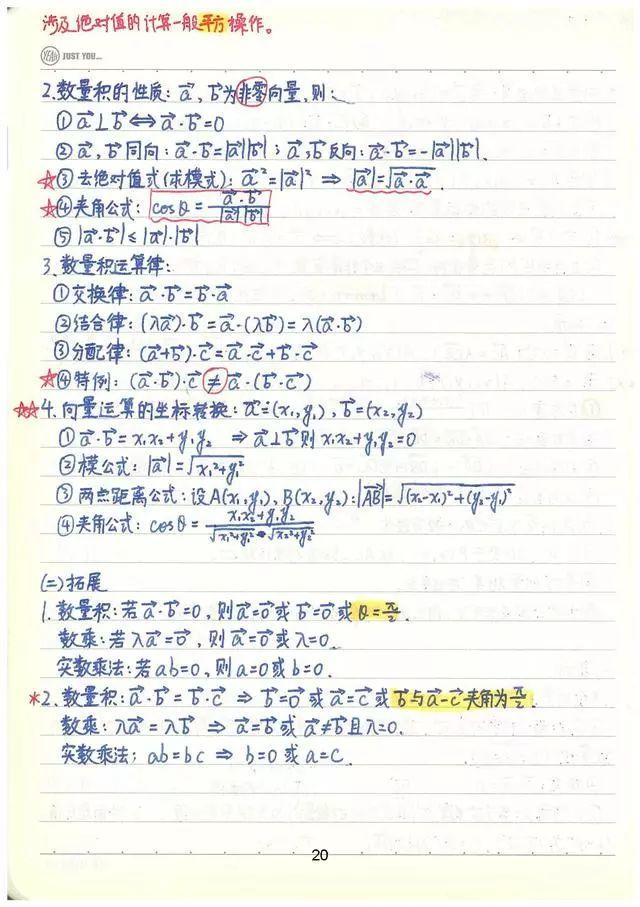 涉及绝对值的计算一般平方操作。
JUST YOU...
2.数量积的性质: a⃗, b⃗为非零向量,则:
① a⃗⊥b⃗⇔a⃗·b⃗=0
② a⃗, b⃗同向: a⃗·b⃗=|a⃗||b⃗|; a⃗,b⃗反向: a⃗·b⃗=-|a⃗||b⃗|.
☆③ 去绝对值式(求模式): a⃗²=|a⃗|² ⇒ |a⃗|=√(a⃗·a⃗)
☆④夹角公式: cosθ=(a⃗·b⃗)/(|a⃗||b⃗|)
⑤ |a⃗·b⃗|≤|a⃗|·|b⃗|
3.数量积运算律:
①交换律: a⃗·b⃗=b⃗·a⃗
②结合律: (λa⃗)·b⃗=a⃗·(λb⃗)=λ(a⃗·b⃗)
③分配律: (a⃗+b⃗)·c⃗=a⃗·c⃗+b⃗·c⃗
☆④特例: (a⃗·b⃗)·c⃗≠a⃗·(b⃗·c⃗)
☆☆4.向量运算的坐标转换: a⃗=(x₁,y₁), b⃗=(x₂,y₂)
① a⃗·b⃗=x₁x₂+y₁y₂ ⇒ a⃗⊥b⃗则x₁x₂+y₁y₂=0
②模公式: |a⃗|=√(x₁²+y₁²)
③ 两点距离公式: 设A(x₁,y₁), B(x₂,y₂): |AB⃗|=√((x₂-x₁)²+(y₂-y₁)²)
④夹角公式: cosθ=(x₁x₂+y₁y₂)/(√(x₁²+y₁²)·√(x₂²+y₂²))
(二)拓展
1.数量积:若a⃗·b⃗=0,则a⃗=0⃗或b⃗=0⃗或θ=π/2.
数乘:若λa⃗=0⃗,则a⃗=0⃗或λ=0.
实数乘法:若ab=0,则a=0或b=0.
*2.数量积: a⃗·b⃗=b⃗·c⃗ ⇒ b⃗=0⃗或a⃗=c⃗或b⃗与a⃗-c⃗夹角为π/2.
数乘: λa⃗=λb⃗ ⇒ a⃗=b⃗或a⃗≠b⃗且λ=0.
实数乘法; ab=bc ⇒ b=0或a=c.
20